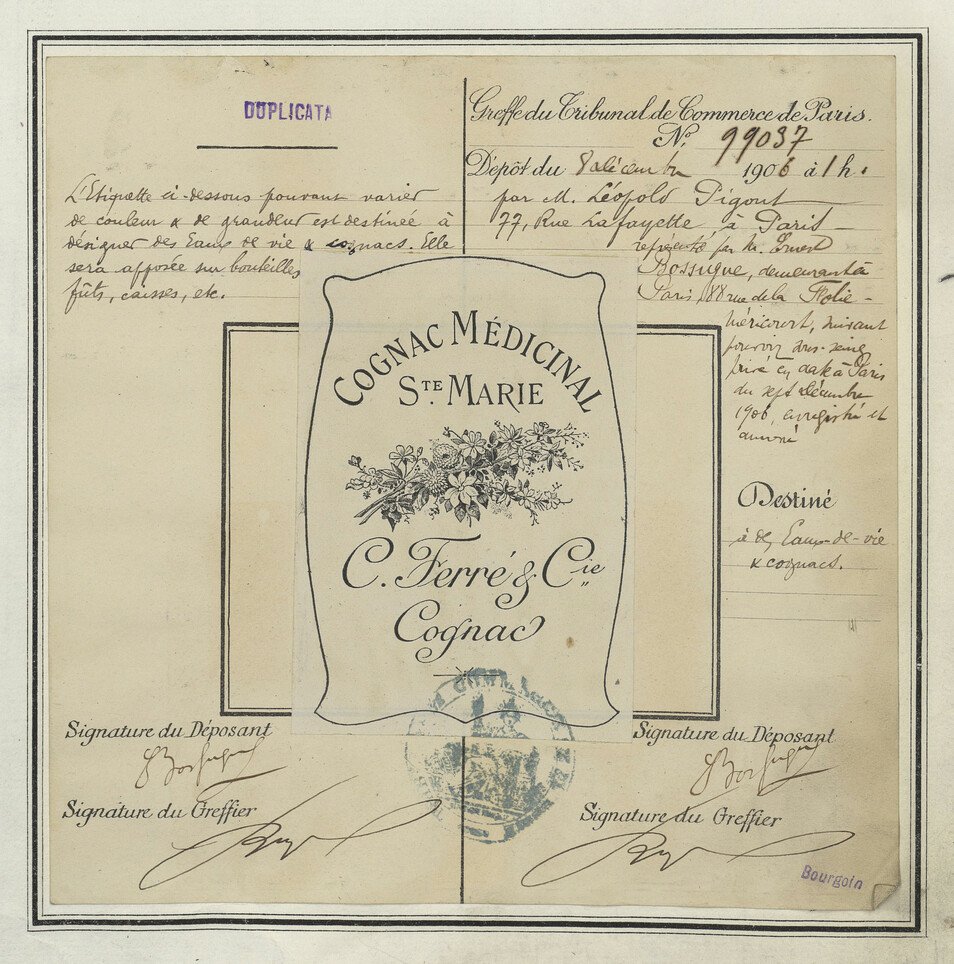 DUPLICATA
L'Etiquette ci-dessous pouvant varier
de couleur & de grandeur est destinée à
désigner des Eaux de vie & cognacs. Elle
sera apposée sur bouteilles
fûts, caisses, etc.
Greffe du Tribunal de Commerce de Paris.
No. 99037
Dépôt du 8 décembre 1906 à 1 h.
par M. Léopold Pigout
77, Rue Lafayette à Paris
représenté par M. Ernest
Bossugue, demeurant à
Paris, 88 rue de la Folie-
Méricourt, suivant
pouvoir sous-seing
privé en date à Paris
du sept décembre
1906, enregistré et
Destiné
à des Eaux-de-vie
& cognacs.
COGNAC MÉDICINAL
STE MARIE
C. Ferré & Cie
Cognac
Signature du Déposant
Signature du Greffier
Signature du Déposant
Signature du Greffier
Bourgoin